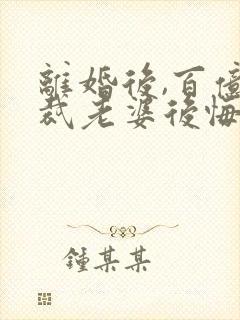 離婚後,百億
裁老婆後悔
鍾某某